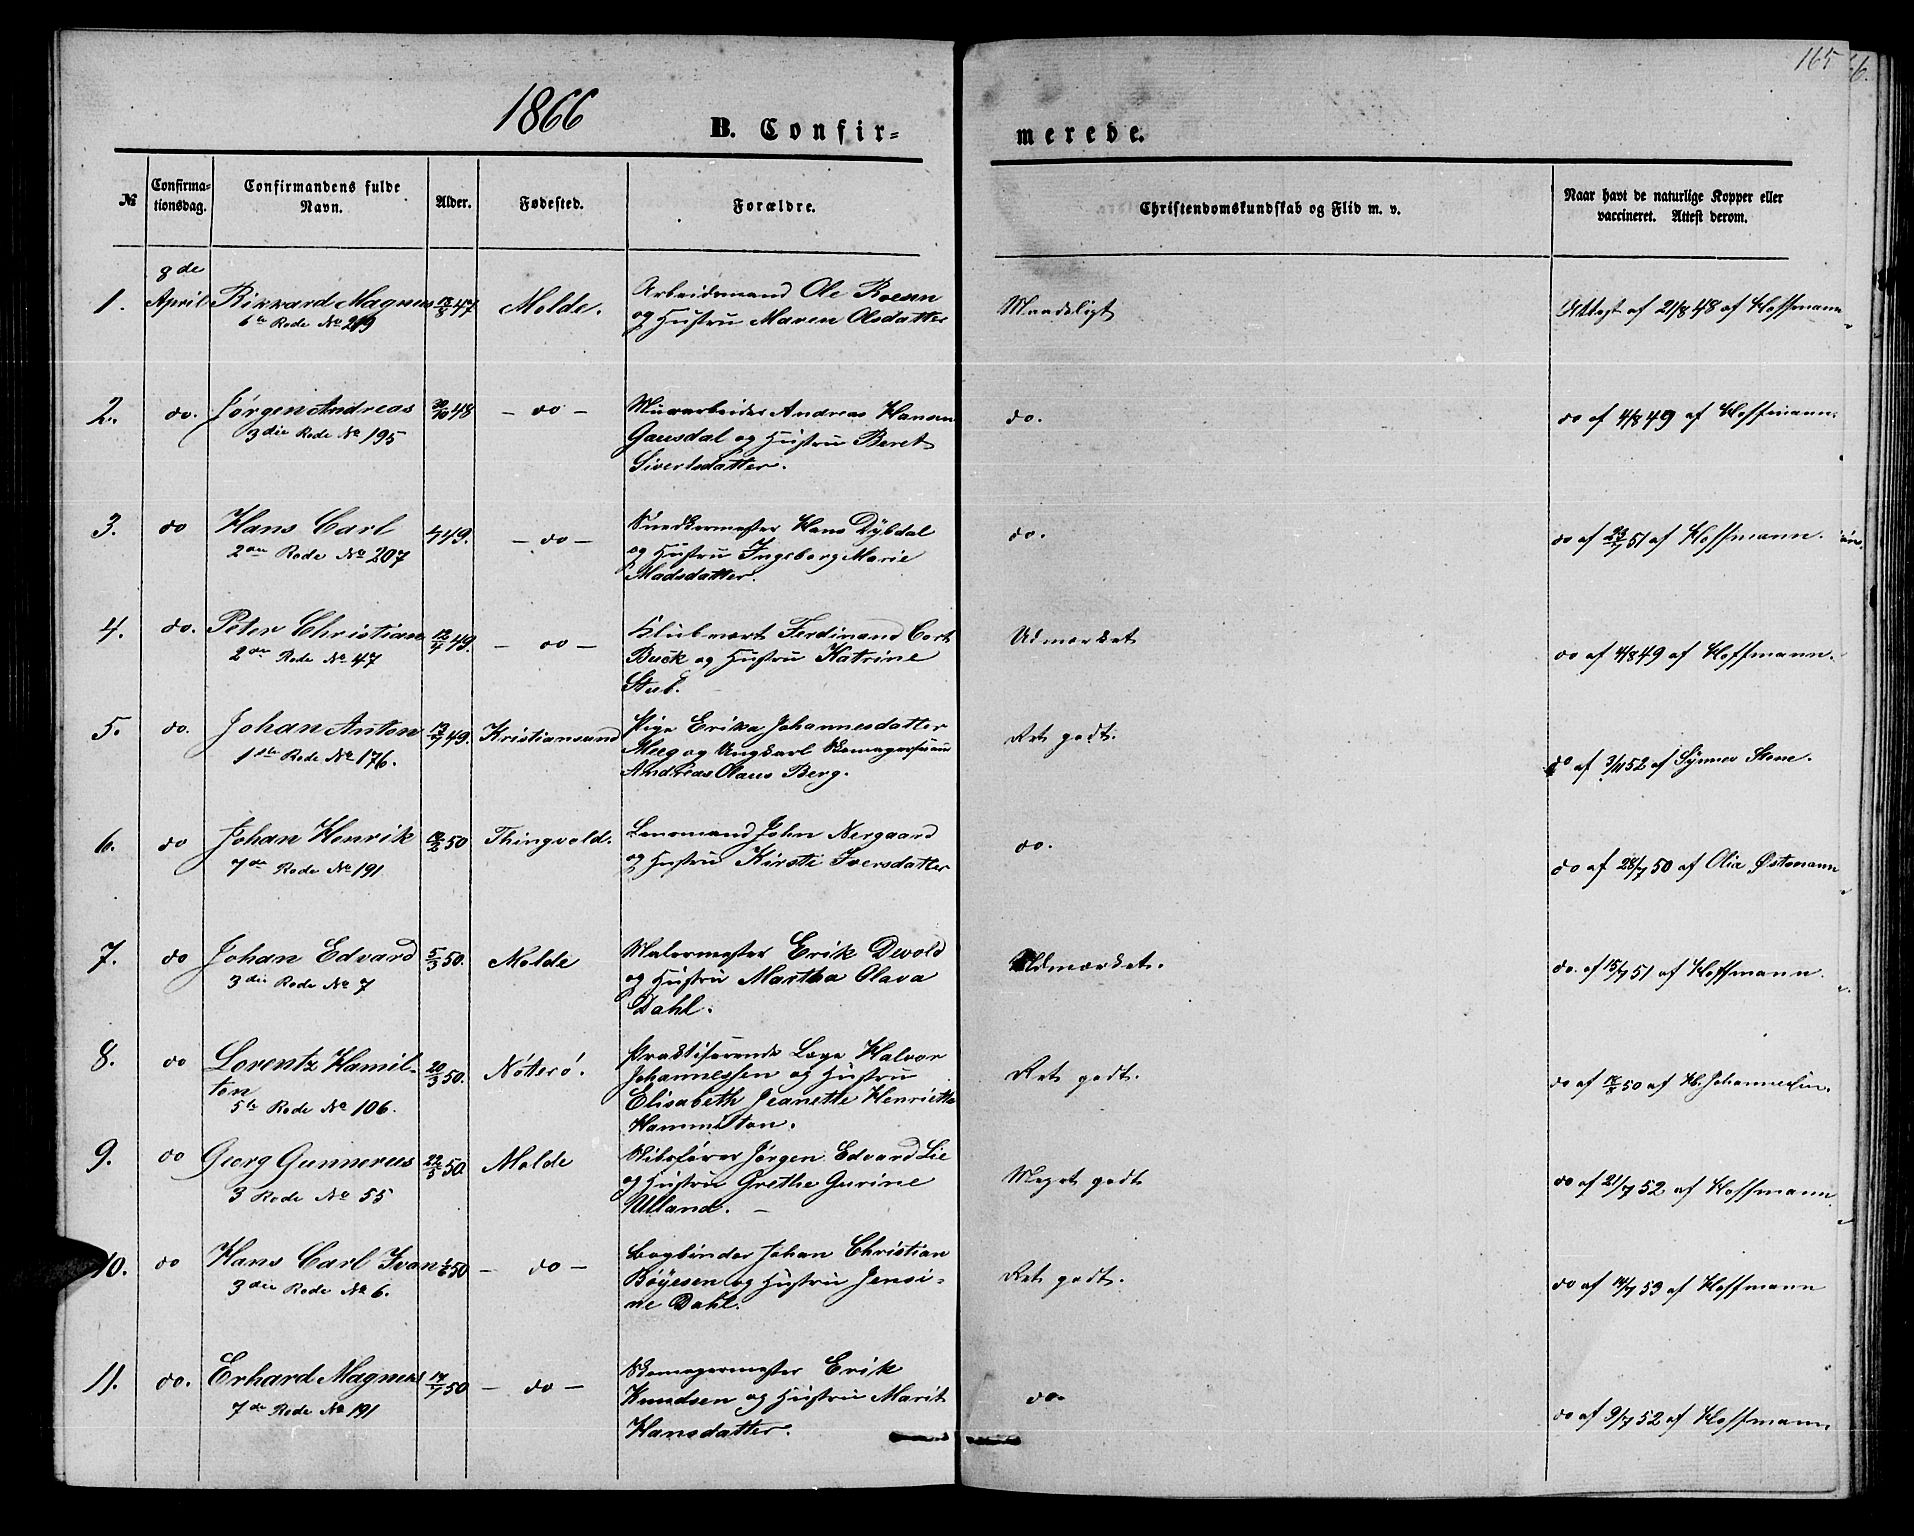 165
6.
1866
B. Confir-
merede.
№
Confirma-
tionsdag.
Confirmandens fulde
Navn.
Alder.
Fødested.
Forældre.
Christendomskundskab og Flid m. v.
Naar havt de naturlige Kopper eller
vaccineret. Attest derom.
1.
8de
April
Rikkard Magnus
6te Rode No 219
47
Molde.
Arbeidsmand Ole Boesen
og Hustru Maren Olsdatter
Maadeligt
Attest af 21/8 48 af Hoffmann
2.
do.
Jørgen Andreas
3die Rode No 195
30/10 48
- do -
Murarbeider Andreas Hansen
Gausdal og Hustru Beret
Sivertsdatter.
do.
do af 4/8 49 af Hoffmann.
3.
do
Hans Carl
2den Rode No 207
49.
- do -
Snedkermester Hans Dybdal
og Hustru Ingeborg Marie
Madsdatter.
do.
do af 51 af Hoffmann.
4.
do.
Peter Christian
2den Rode No 47
49.
- do -
Klubvært Ferdinand Cort
Buck og Hustru Katrine
Stub.
Udmærket
do af 4/8 49 af Hoffmann.
5.
do.
Johan Anton
1ste Rode No 176.
49.
Kristiansund
Pige Erika Johannesdatter
Meeg og Ungkarl Skomagersvend
Andreas Olaus Berg.
Ret godt.
do af 3/11 52 af Synnev Stene.
6.
do
Johan Henrik
7de Rode No 191
50
Thingvold.
Lensmand John Nergaard
og Hustru Kirsti Iversdatter
do.
do af 28/7 50 af Olia Østmann
7.
do
Johan Edvard
3die Rode No 7
5/3 50.
Molde
Malermester Erik Devold
og Hustru Martha Olava
Dahl.
Udmærket.
do. af 15/7 51 af Hoffmann.
8.
do
Lorentz Hamil-
ton
5te Rode No 106.
20/3 50.
Nøterø.
Praktiserende Læge Halvor
Johannessen og Hustru
Elisabeth Jeanette Henriette
Hammilton.
Ret godt.
do af 50 af H. Johannessen.
9.
do
Georg Gunnerus
3 Rode No 55
22/5 50.
Molde
Skibsfører Jørgen Edvard Lie
og Hustru Grethe Gurine
Ulland. -
Meget godt
do af 21/7 52 af Hoffmann.
10.
do
Hans Carl Ivan
3die Rode No 6.
50
- do -
Bogbinder Johan Christian
Bøyesen og Hustru Jensi-
ne Dahl.
Ret godt.
do af 53 af Hoffmann
11.
do.
Erhard Magnus
7de Rode No 191
17/7 50
- do -
Skomagermester Erik
Knudsen og Hustru Marit
Hansdatter.
do.
do af 9/7 52 af Hoffmann.